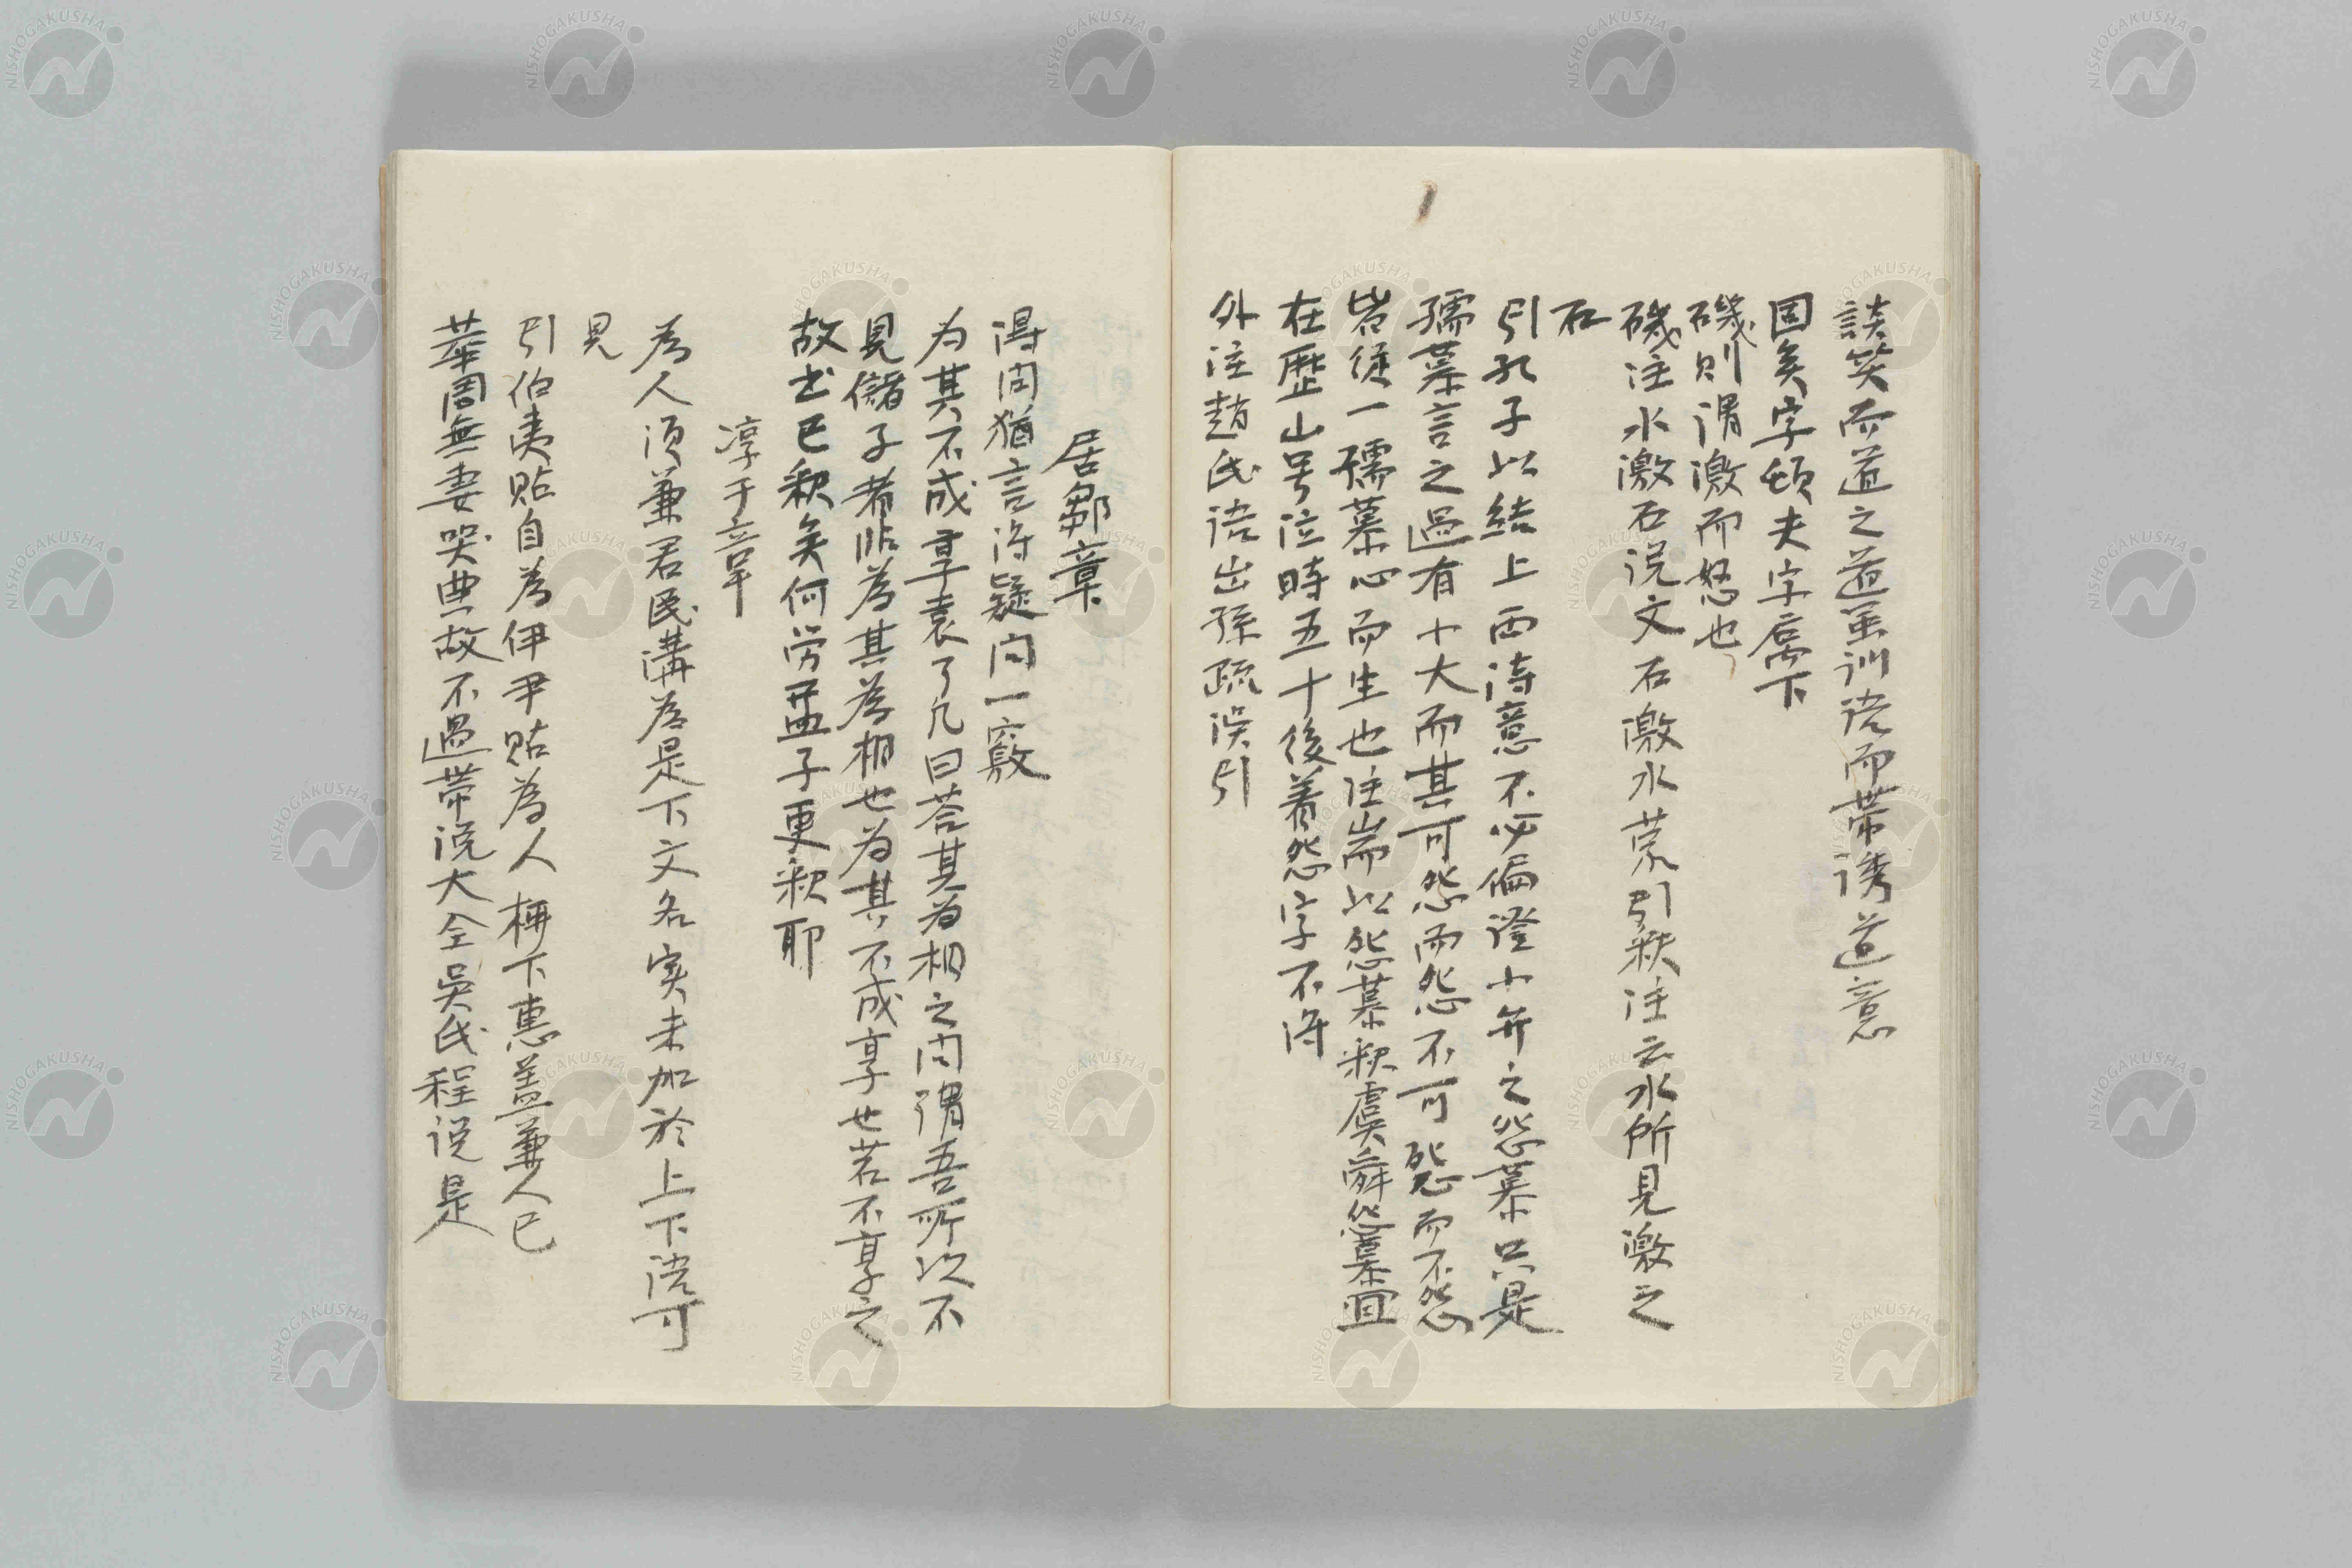 談笑而道之道虽訓語而帶誘道意
固矣字頓夫字屬下
磯則謂激而怒也
磯注水激石说文石激水蒙引釈注云水所見激之
石
引孔子以結上両诗意不必偏證小弁之怨慕只是
孺慕言之過有十大而其可怨而怨不可怨而不怨
皆従一孺慕心而生也注耑以怨慕釈虞舜怨慕固
在歴山号泣時五十後着怨字不得
外注趙氏语出孫疏误引
居鄒章
得問猶言得疑问一竅
为其不成享袁了凡曰若其为相之问謂吾所以不
見儲子者非為其為相也为其不成享也若不享之
故书已釈矣何労孟子更釈耶
淳于章
為人須兼君民講為是下文名実未加於上下语可
見
引伯夷贴自為伊尹贴為人柳下惠蓋兼人已
華周無妻哭典故不過帯说大全吳氏程说是
NISHOGAKUSHA